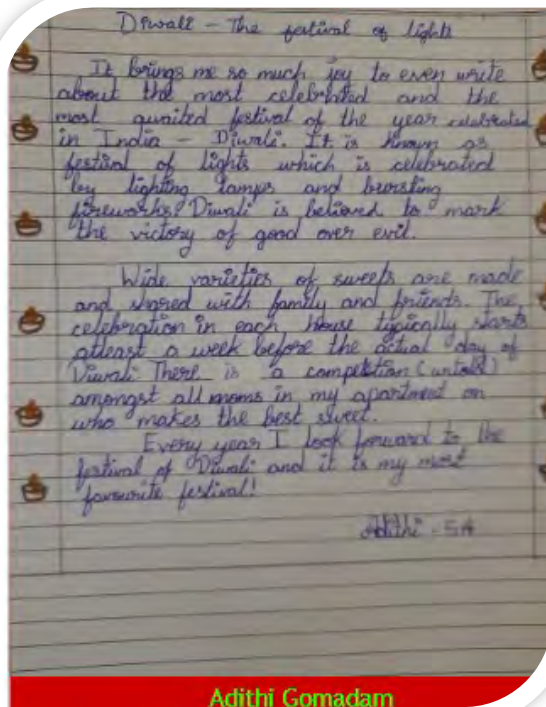 Diwali - The festival of lights
It brings me so much joy to even write
about the most celebrated and the
most awaited festival of the year celebrated
in India - Diwali. It is known as
festival of lights which is celebrated
by lighting lamps and bursting
fireworks! Diwali is believed to mark
the victory of good over evil.
Wide varieties of sweets are made
and shared with family and friends. The
celebration in each house typically starts
atleast a week before the actual day of
Diwali. There is a competition (untold)
amongst all moms in my apartment on
who makes the best sweet.
Every year I look forward to the
festival of Diwali and it is my most
favourite festival!
Adithi - 5A
Adithi Gomadam